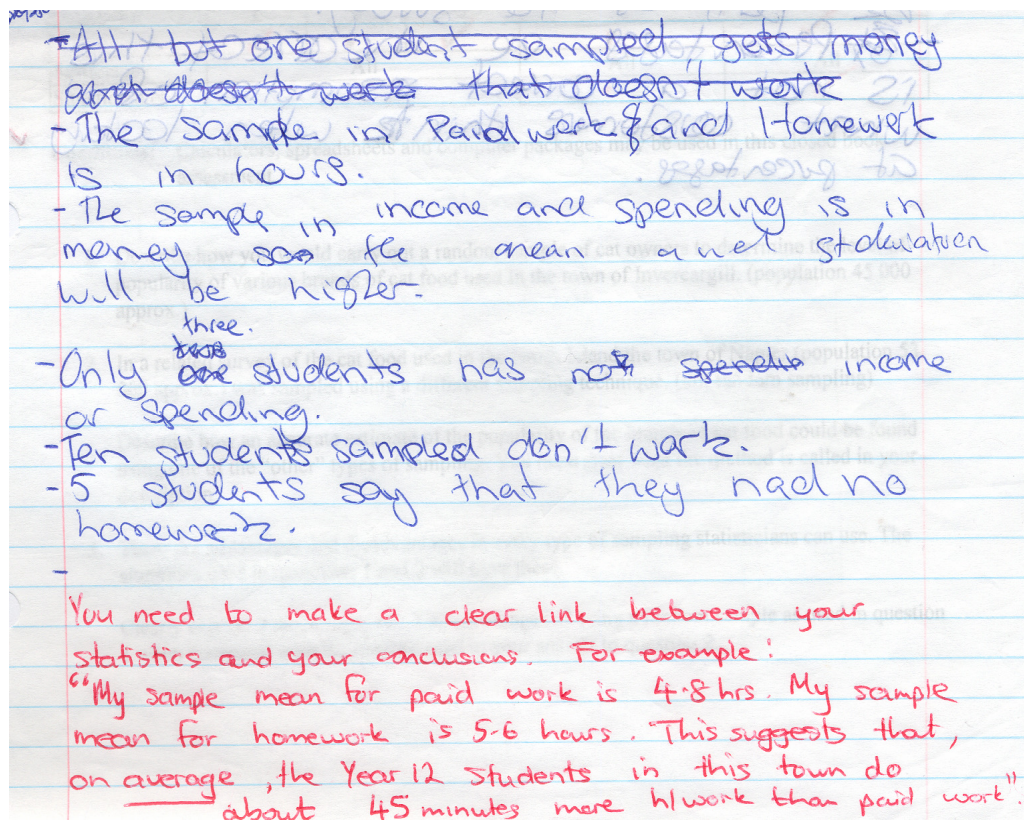 - All but one student sampled, gets money
and doesn't work that doesn't work
- The sample in Paid work & and Homework
is in hours.
- The sample in income and spending is in
money so the mean and st deviation
will be higer.
three.
two
- Only one students has not spendin income
or spending.
- Ten students sampled don't work.
- 5 students say that they had no
homework.
-
You need to make a clear link between your
statistics and your conclusions. For example:
"My sample mean for paid work is 4.8 hrs. My sample
mean for homework is 5.6 hours. This suggests that,
on average, the Year 12 students in this town do
about 45 minutes more h/work than paid work".